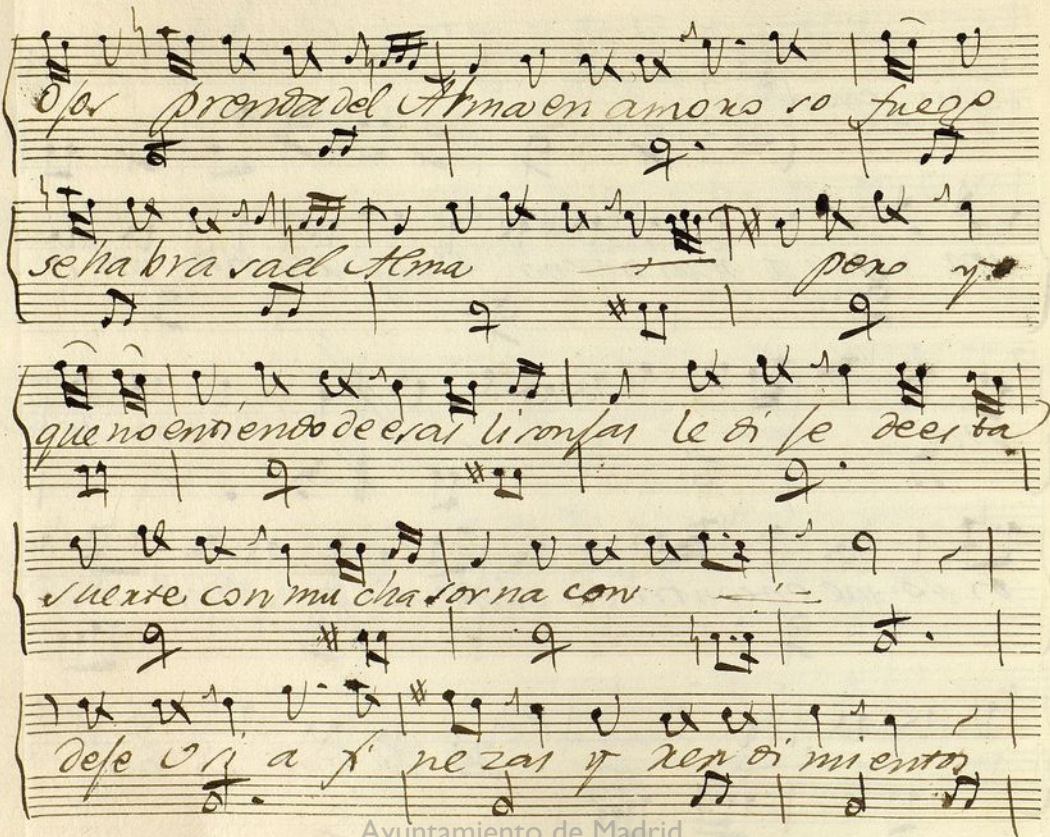 Ojos prenda del Alma en amoroso fuego
se ha bra sa el Alma pero yo
que no entiendo de esas lisonjas le dije de esta
suerte con mu cha sorna con
deje Usia fi nezas y rendi mientos
Ayuntamiento de Madrid